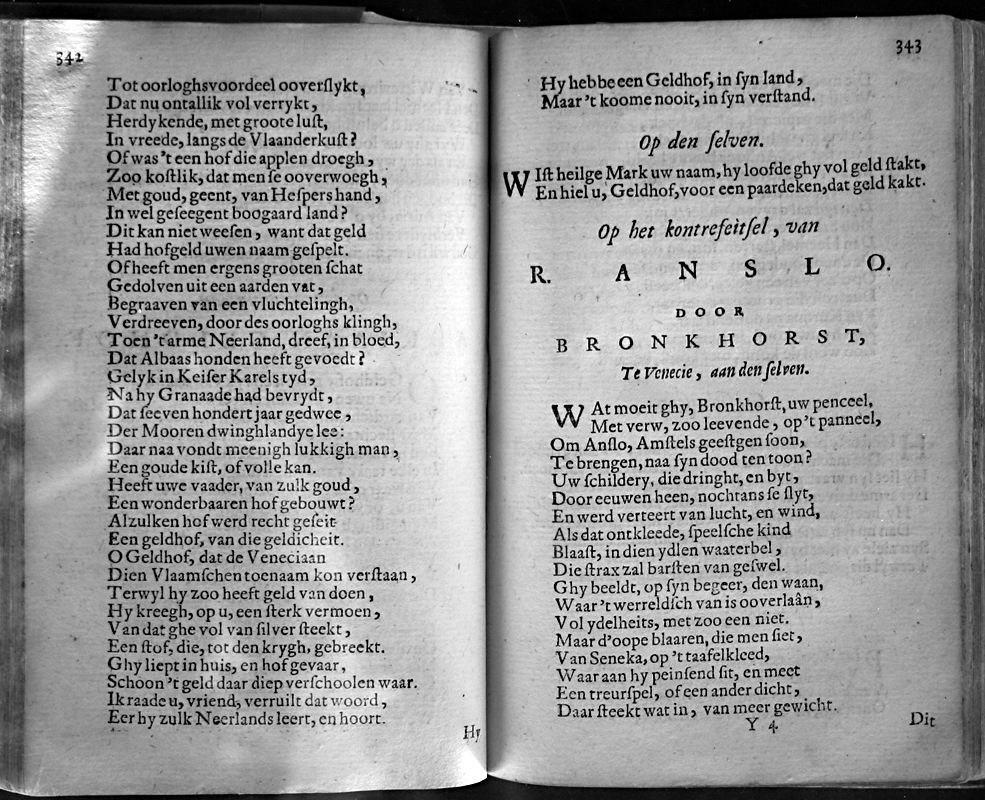 342
Tot oorloghsvoordeel ooverslykt,
Dat nu ontallik vol verrykt,
Herdykende, met groote lust,
In vreede, langs de Vlaanderkust?
Of was 't een hof die applen droegh,
Zoo kostlik, dat men se ooverwoegh,
Met goud, geent, van Hespers hand,
In wel geseegent boogaard land?
Dit kan niet weesen, want dat geld
Had hofgeld uwen naam gespelt.
Of heeft men ergens grooten schat
Gedolven uit een aarden vat,
Begraaven van een vluchtelingh,
Verdreeven, door des oorloghs klingh,
Toen 't arme Neerland, dreef, in bloed,
Dat Albaas honden heeft gevoedt?
Gelyk in Keiser Karels tyd,
Na hy Granaade had bevrydt,
Dat seeven hondert jaar gedwee,
Der Mooren dwinghlandye lee:
Daar naa vondt meenigh lukkigh man,
Een goude kist, of volle kan.
Heeft uwe vaader, van zulk goud,
Een wonderbaaren hof gebouwt?
Alzulken hof werd recht geseit
Een geldhof, van die geldicheit.
O Geldhof, dat de Veneciaan
Dien Vlaamschen toenaam kon verstaan,
Terwyl hy zoo heeft geld van doen,
Hy kreegh, op u, een sterk vermoen,
Van dat ghe vol van silver steekt,
Een stof, die, tot den krygh, gebreekt.
Ghy liept in huis, en hof gevaar,
Schoon 't geld daar diep verschoolen waar.
Ik raade u, vriend, verruilt dat woord,
Eer hy zulk Neerlands leert, en hoort.
Hy
343
Hy hebbe een Geldhof, in syn land,
Maar 't koome nooit, in syn verstand.
Op den selven.
WIst heilge Mark uw naam, hy loofde ghy vol geld stakt,
En hiel u, Geldhof, voor een paardeken, dat geld kakt.
Op het kontrefeitsel, van
R. ANSLO.
DOOR
BRONKHORST,
Te Venecie, aan den selven.
WAt moeit ghy, Bronkhorst, uw penceel,
Met verw, zoo leevende, op 't panneel,
Om Anslo, Amstels geestgen soon,
Te brengen, naa syn dood ten toon?
Uw schildery, die dringht, en byt,
Door eeuwen heen, nochtans se slyt,
En werd verteert van lucht, en wind,
Als dat ontkleede, speelsche kind
Blaast, in dien ydlen waaterbel,
Die strax zal barsten van geswel.
Ghy beeldt, op syn begeer, den waan,
Waar 't werreldsch van is ooverlaân,
Vol ydelheits, met zoo een niet.
Maar d'oope blaaren, die men siet,
Van Seneka, op 't taafelkleed,
Waar aan hy peinsend sit, en meet
Een treurspel, of een ander dicht,
Daar steekt wat in, van meer gewicht.
Y 4
Dit